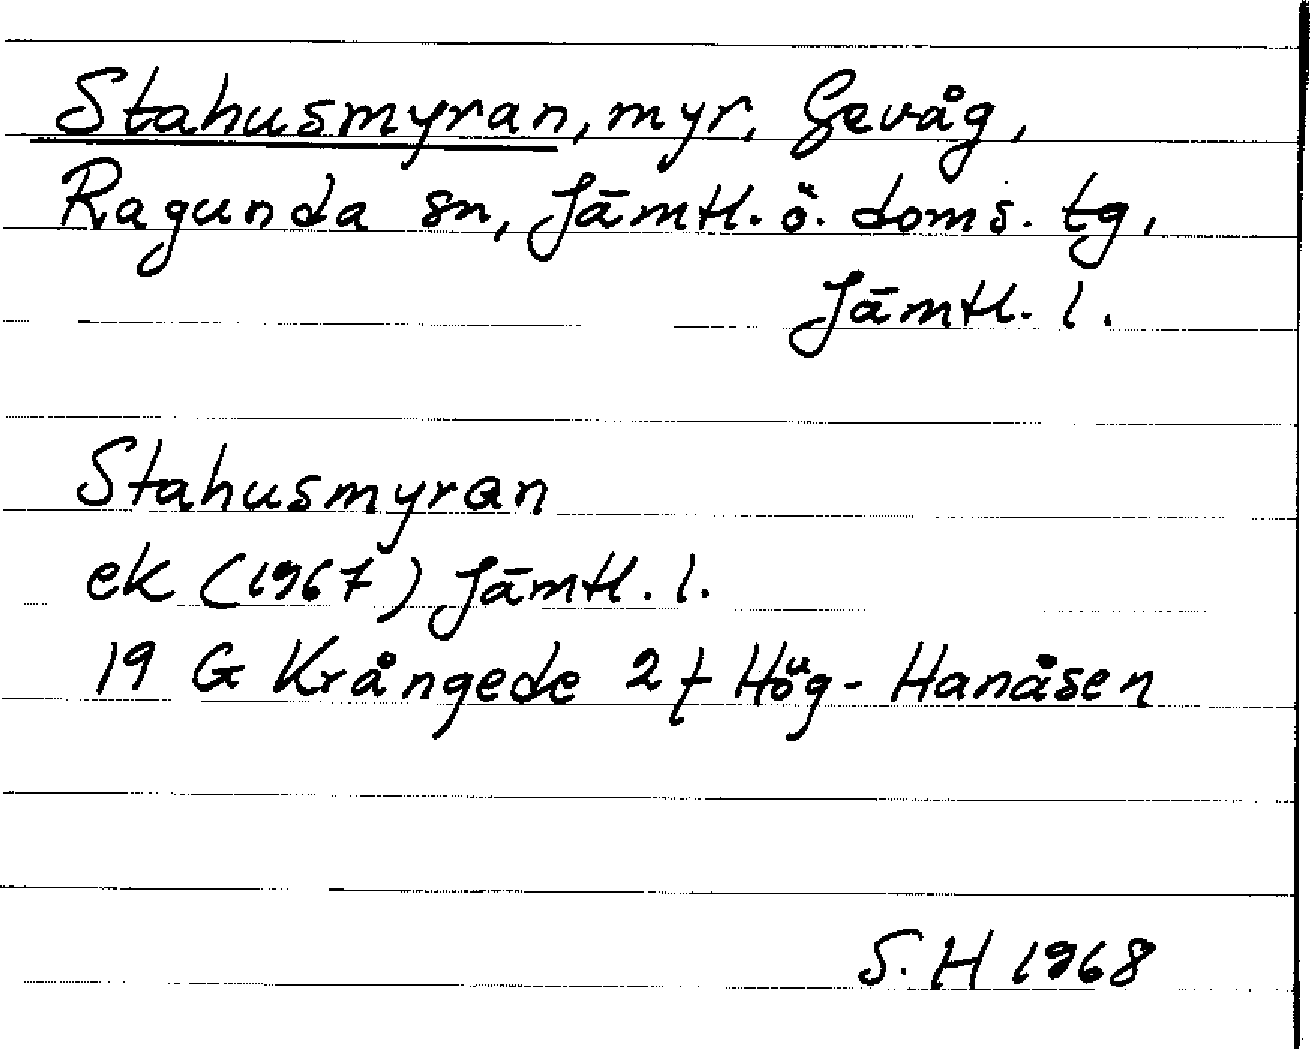 Stahusmyran, myr, Gevåg,
Ragunda sn, Jämtl. ö. doms. tg,
Jämtl. l.
Stahusmyran
ek (1967) Jämtl. l.
19 G Krångede 2 f Hög-Hanåsen
S. H 1968